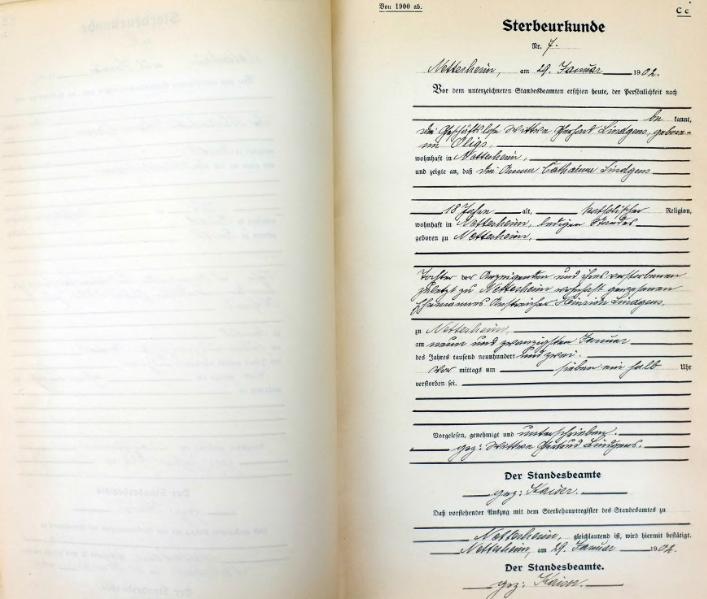 Von 1900 ab.
C c
Sterbeurkunde
Nr. 7.
Nettersheim, am 29. Januar 1902.
Vor dem unterzeichneten Standesbeamten erschien heute, der Persönlichkeit nach
be kannt,
die Geschäftslose Wittwe Lindgens, gebore=
ne
wohnhaft in Nettersheim,
und zeigte an, daß die Anna Catharina Lindgens
18 Jahre alt, katholischer Religion,
wohnhaft in Nettersheim, ledigen Standes
geboren zu Nettersheim,
Tochter der Anzeigenden und ihres verstorbenen
zuletzt zu Nettersheim wohnhaft gewesenen
Ehemannes Heinrich Lindgens
zu Nettersheim,
am neun und zwanzigsten Januar
des Jahres tausend neunhundert und zwei
Vor mittags um sieben ein halb Uhr
verstorben sei.
Vorgelesen, genehmigt und unterschrieben:
gez: Wittwe Lindgens.
Der Standesbeamte
gez: Kaiser.
Daß vorstehender Auszug mit dem Sterbehauptregister des Standesamtes zu
Nettersheim, gleichlautend ist, wird hiermit bestätigt.
Nettersheim, am 29. Januar 1902.
Der Standesbeamte.
gez: Kaiser.